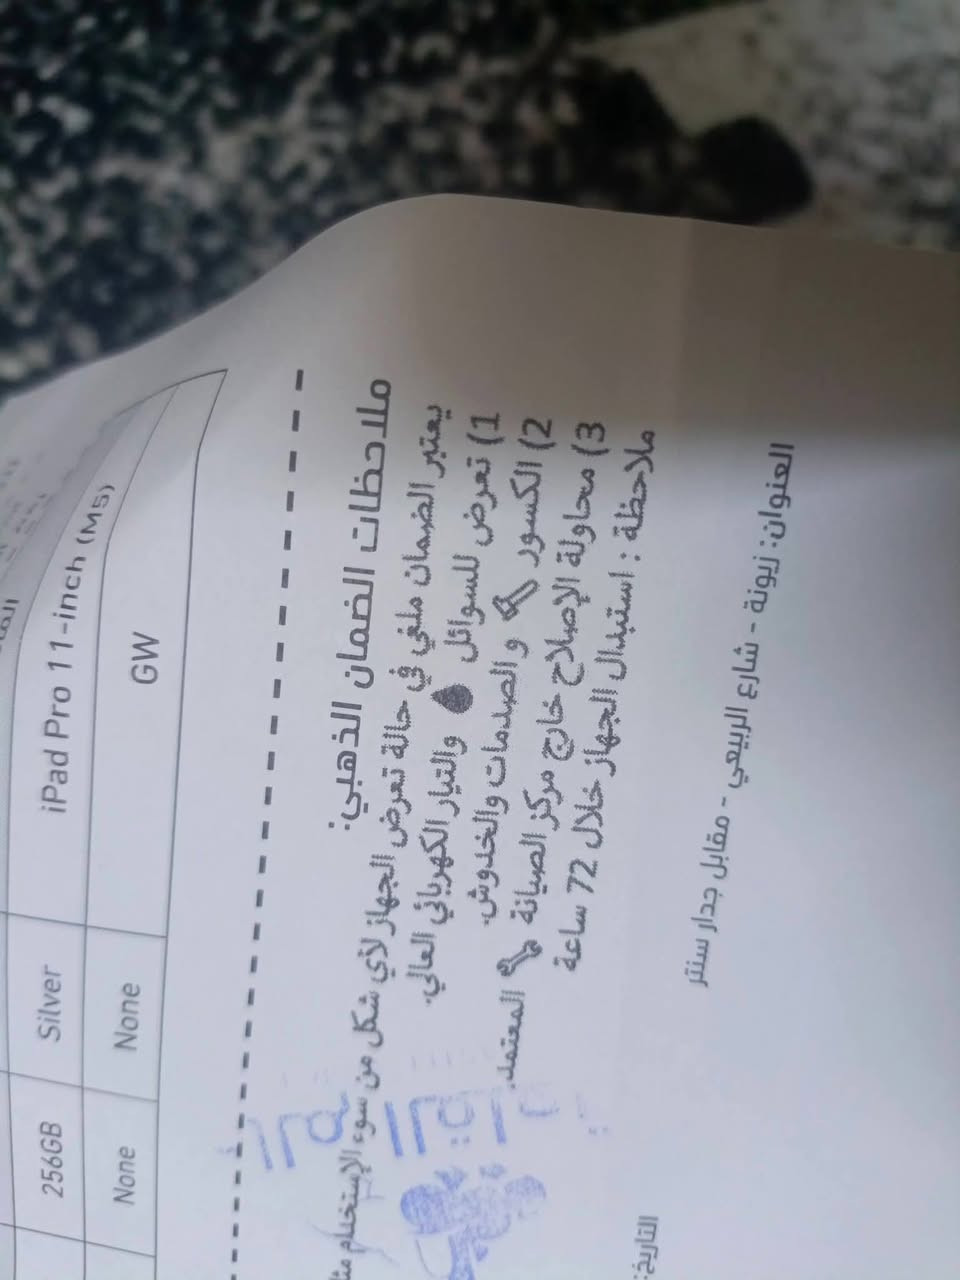 256GB Silver iPad Pro 11-inch (M5)
None None GW
ملاحظات الضمان الذهبي:
يعتبر الضمان ملغي في حالة تعرض الجهاز لأي شكل من سوء الإستخدام
1) تعرض للسوائل والتيار الكهربائي العالي.
2) الكسور والصدمات والخدوش.
3) محاولة الإصلاح خارج مركز الصيانة المعتمد.
ملاحظة : استبدال الجهاز خلال 72 ساعة
التاريخ:
العنوان: زيونة - شارع الربيعي - مقابل جدار سنتر